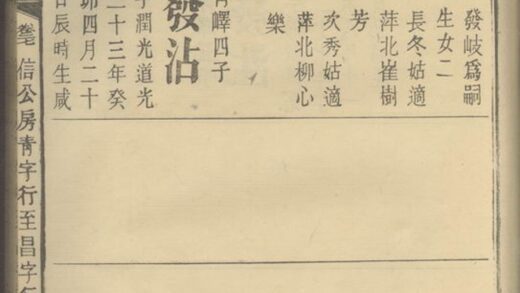 發岐爲嗣
生女二
長冬姑適
萍北崔樹
芳
次秀姑適
萍北柳心
樂
發沾
嶧四子
潤光道光
二十三年癸
卯四月二十
日辰時生咸
信公房青字行至昌字